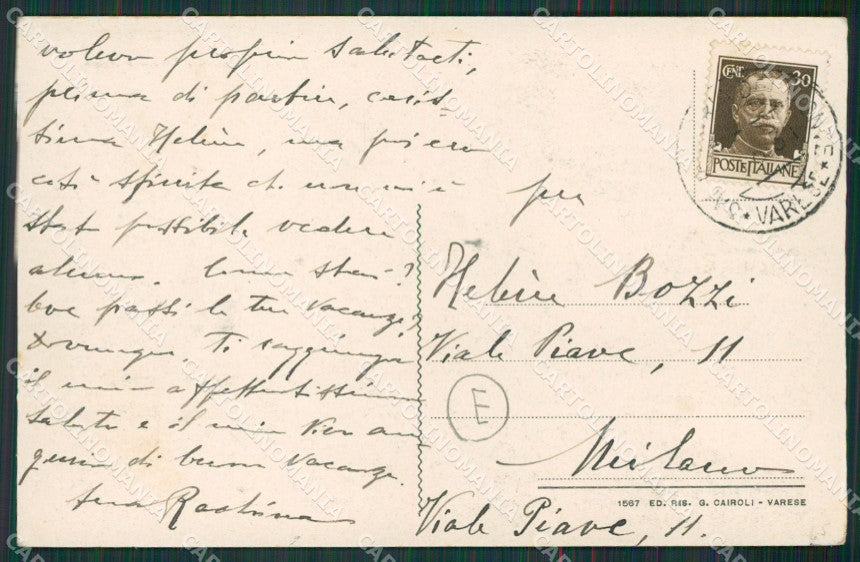 volevo proprio salutarti,
prima di partire, caris-
sima Helène, ma poi ero
così sfinita che non mi è
stato possibile vedere
alcuno. Come stai?
Dove passi le tue vacanze?
Dovunque, Ti raggiunga
il mio affettuosissimo
saluto e il mio vivo au
gurio di buone vacanze.
tua
per
Helène Bozzi
Viale Piave, 11
E
Milano
Viale Piave, 11.
CENT. 30
POSTE ITALIANE
VARESE
1567 ED. RIS. G. CAIROLI - VARESE
CARTOLINOMANIA